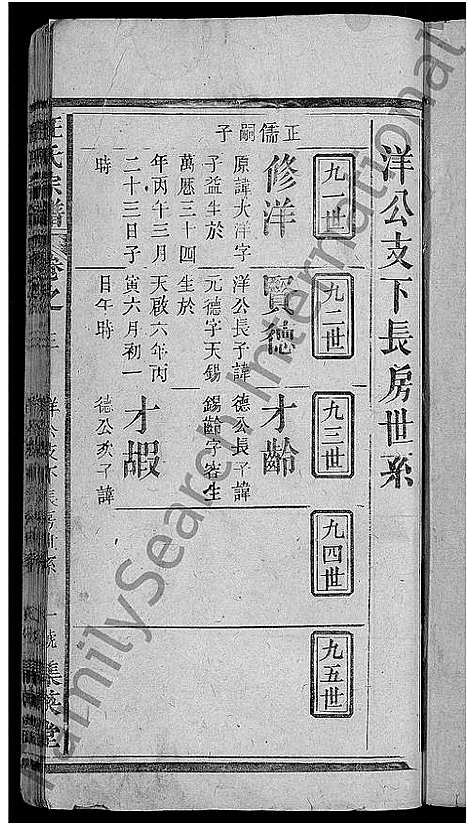 洋公支下長房世系
九一世
九二世
九三世
九四世
九五世
正儒嗣子
修洋
原諱大洋字
子益生於
萬厯三十四
年丙午三月
二十三日子
時
賢德
洋公長子諱
元德字天錫
生於
天啟六年丙
寅六月初一
日午時
才齡
德公長子諱
錫齡字
生
才嘏
德公次子諱
汪氏宗譜
卷之三
洋公支下長房世系
一
集英堂
FamilySearch International